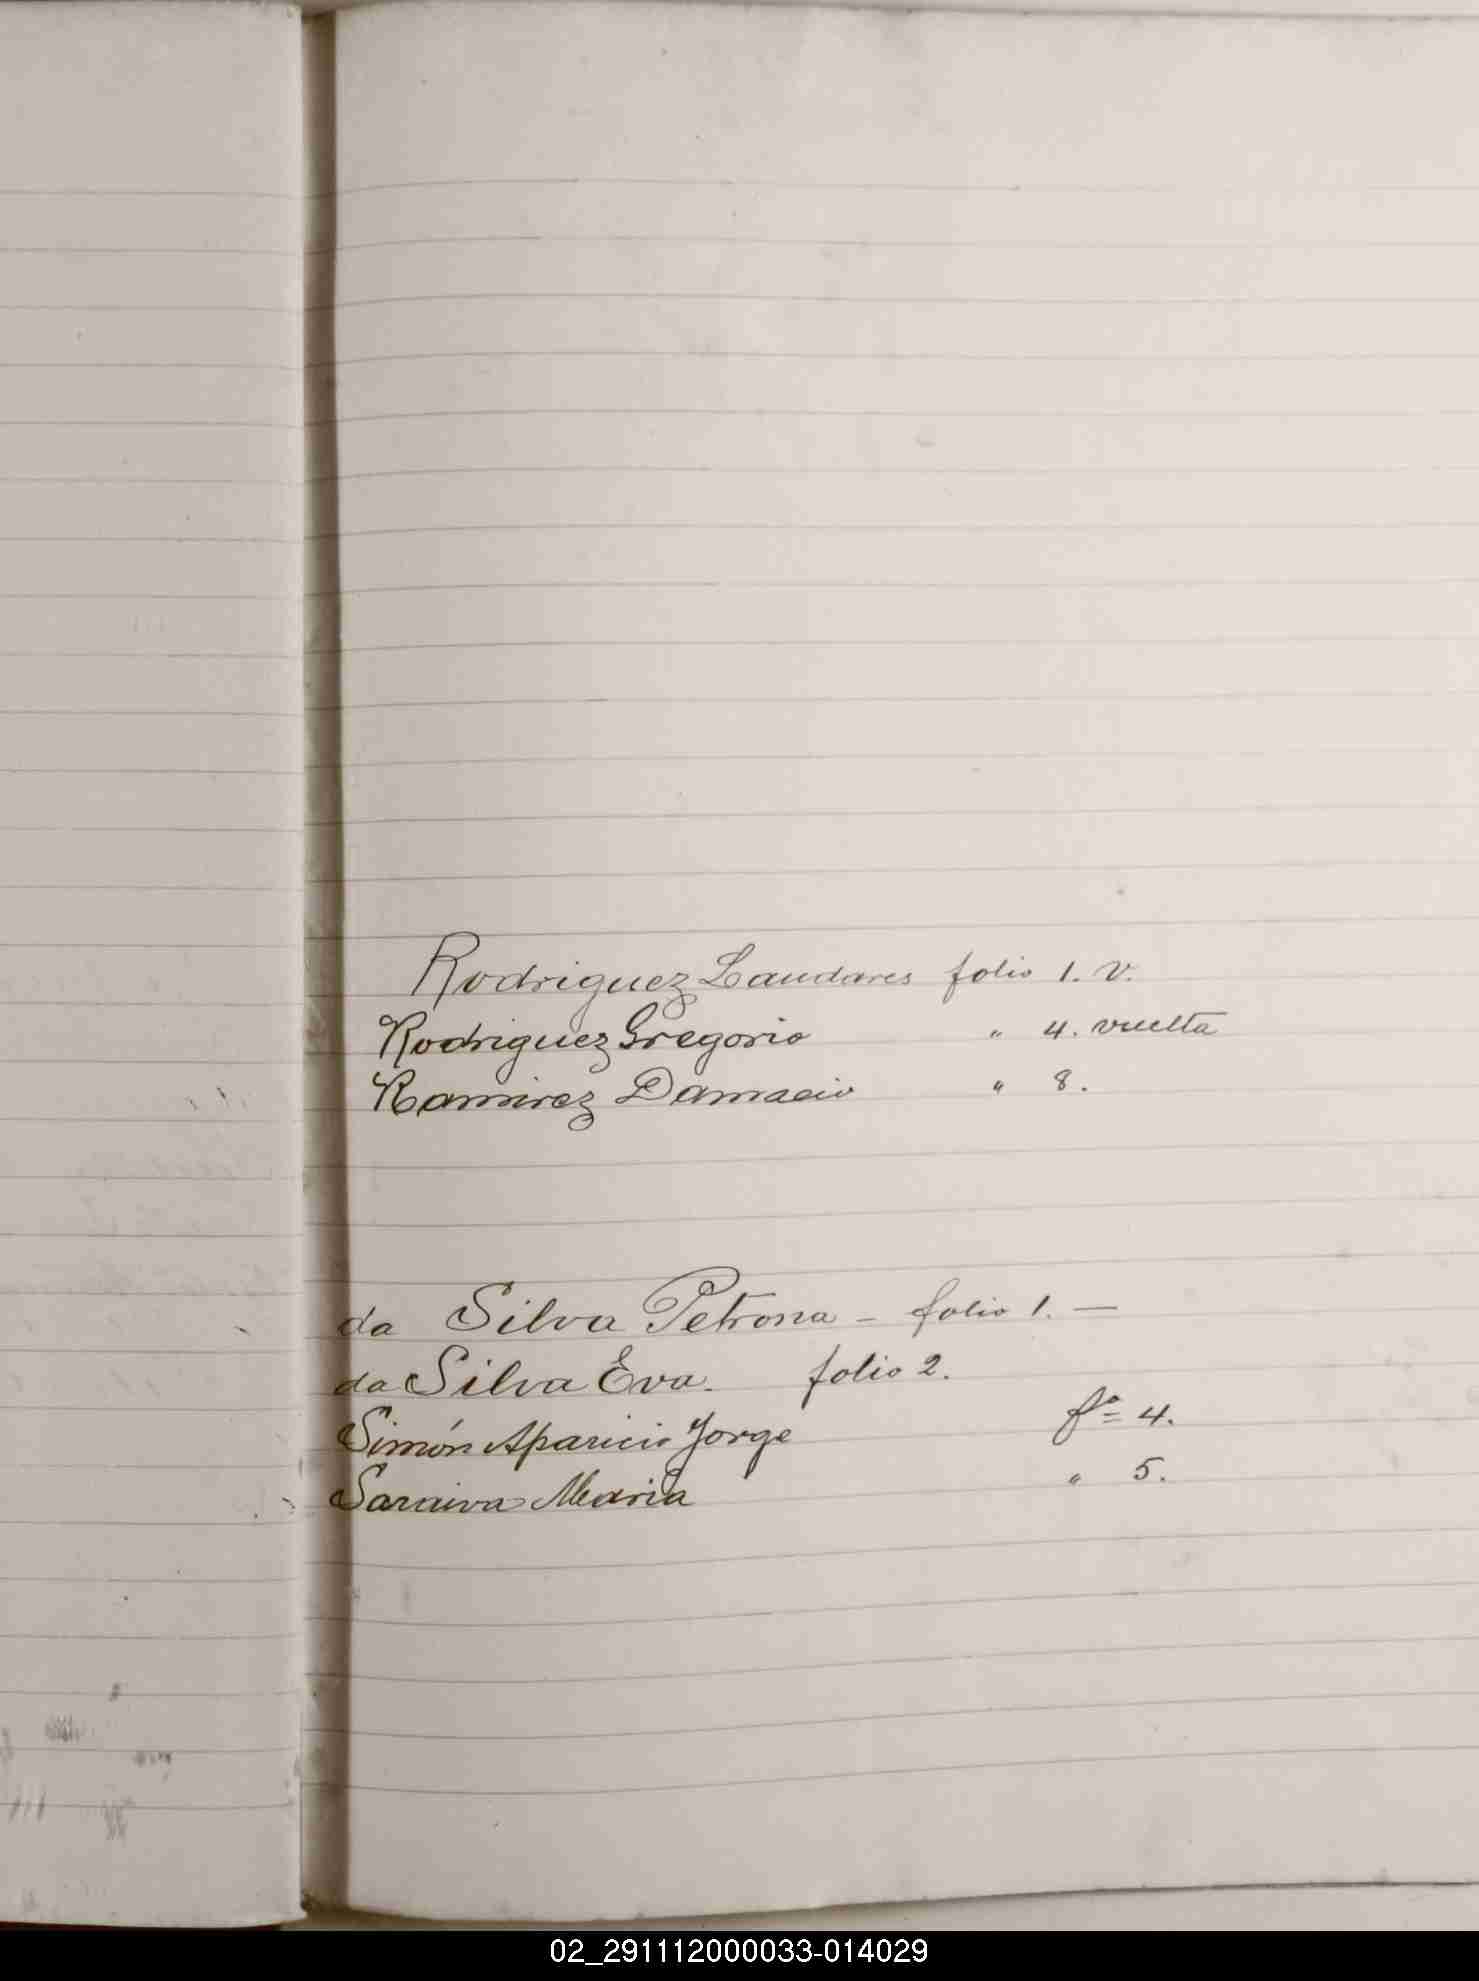 Rodriguez Laudares folio 1. v.
Rodriguez Gregorio " 4. vuelta
Ramirez Damacio " 8.
da Silva Petrona - folio 1. —
da Silva Eva. folio 2.
Simón Aparicio Jorge fº 4.
Saraiva Maria " 5.
02_291112000033-014029